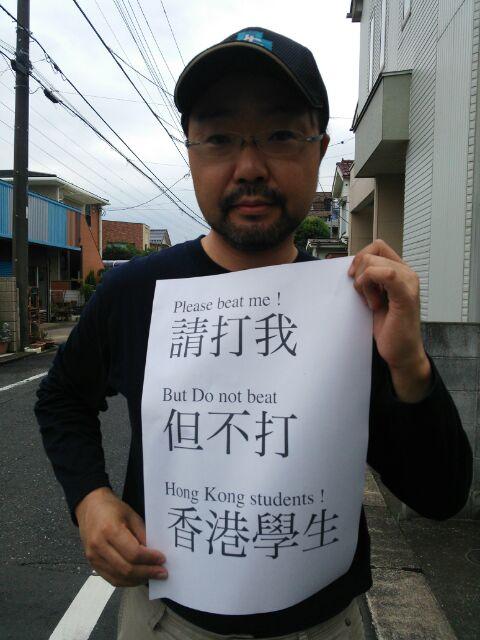 Please beat me !
請打我
But Do not beat
但不打
Hong Kong students !
香港學生